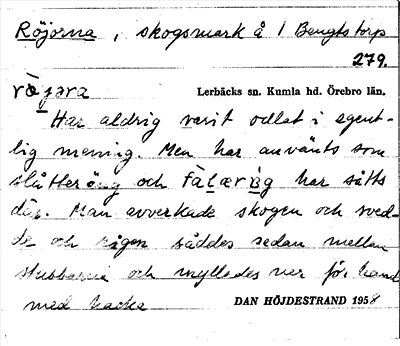 Röjorna, skogsmark å 1 Bengtstorp
279.
rὰjəra
Lerbäcks sn. Kumla hd. Örebro län.
Har aldrig varit odlat i egent-
lig mening. Men har använts som
slåtteräng och fàlarùg har såtts
där. Man avverkade skogen och sved-
de och rågen såddes sedan mellan
stubbarna och mylledes ner för hand
med hacka
DAN HÖJDESTRAND 1958